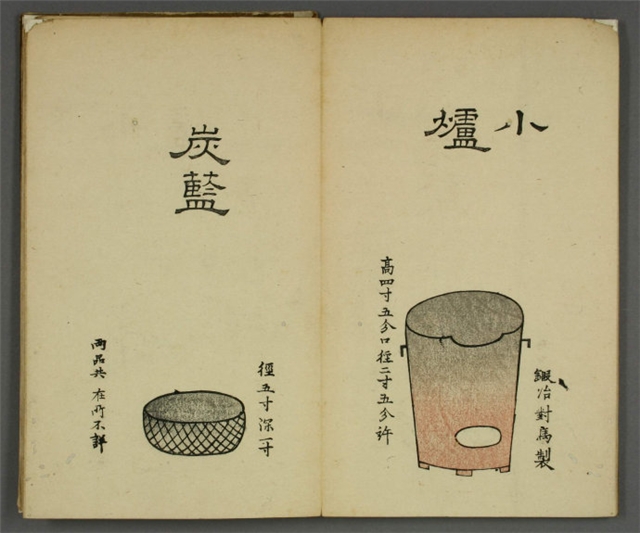 小爐
鍛冶對馬製
高四寸五分口徑二寸五分許
炭藍
徑五寸深一寸
両品共在所不詳